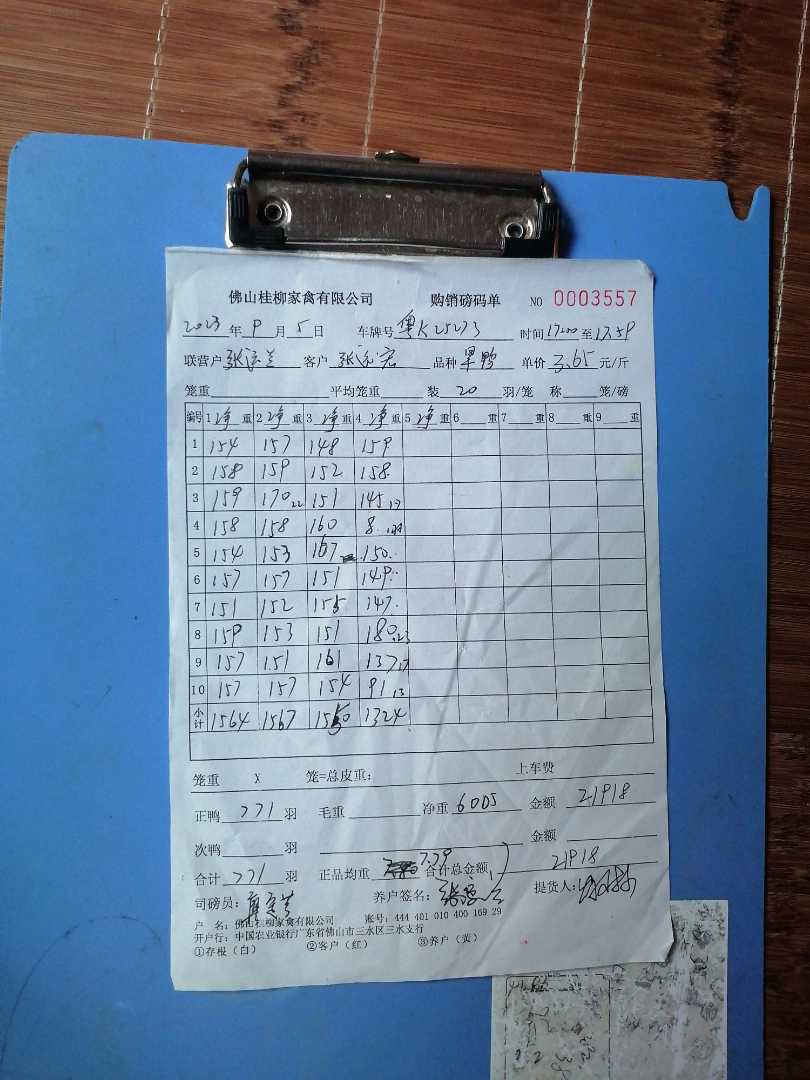 佛山桂柳家禽有限公司 购销磅码单 NO 0003557
2023 年 9 月 5 日 车牌号 粤K25273 时间 17:00 至 17:59
联营户 客户 品种 单价 3.65 元/斤
笼重 平均笼重 装 20 羽/笼 称 笼/磅
编号 1 净 重 2 净 重 3 净 重 4 净 重 5 净 重 6 重 7 重 8 重 9 重
1 154 157 148 159
2 158 159 152 158
3 159 170 22 151 145 19
4 158 158 160 8
5 154 153 167 150
6 157 157 151 149
7 151 152 155 147
8 159 153 151 180 23
9 157 151 161 137 17
10 157 157 154 91 13
小计 1564 1567 1550 1324
笼重 X 笼=总皮重: 上车费
正鸭 771 羽 毛重 净重 6005 金额 21918
次鸭 羽 金额
合计 771 羽 正品均重 7.79 合计总金额 21918
司磅员: 养户签名: 提货人:
户 名: 佛山桂柳家禽有限公司 账号: 444 401 010 400 169 29
开户行: 中国农业银行广东省佛山市三水区三水支行
①存根(白) ②客户(红) ③养户(黄)